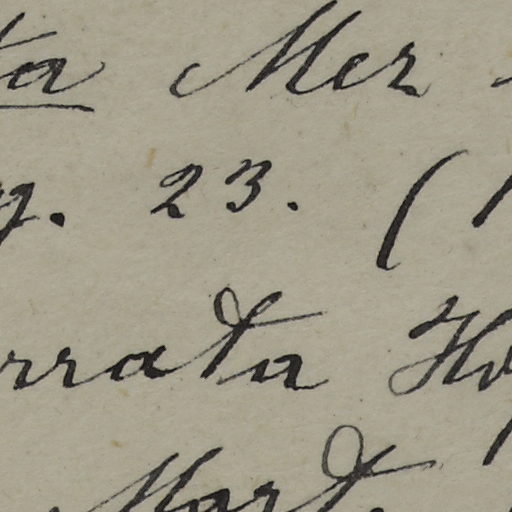 ta Mer
g. 23. (
errata Ho
Mart.